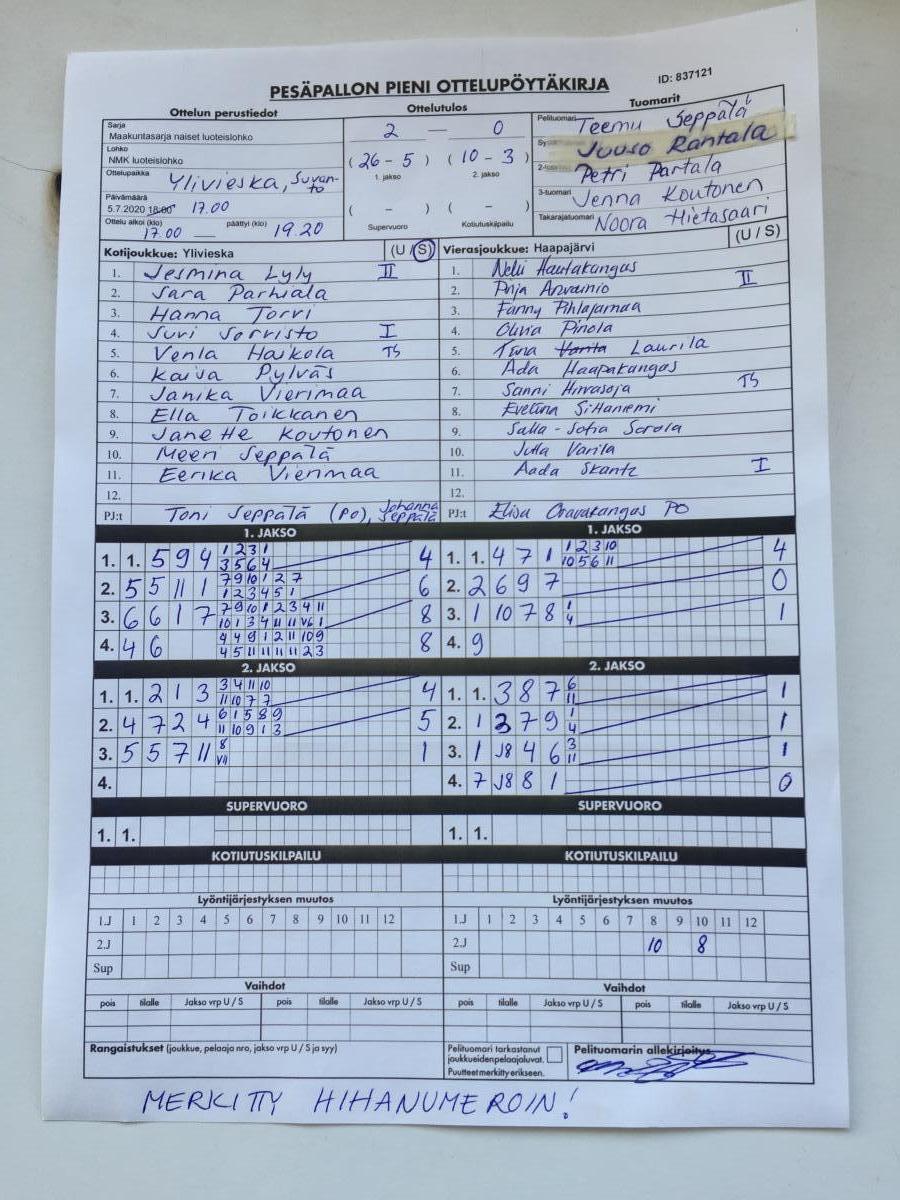 PESÄPALLON PIENI OTTELUPÖYTÄKIRJA
ID: 837121
Ottelun perustiedot
Sarja
Maakuntasarja naiset luoteislohko
Lohko
NMK luoteislohko
Ottelupaikka Ylivieska, Suvanto
Päivämäärä
5.7.2020 18:00 17.00
Ottelu alkoi (klo) 17.00 — päättyi (klo) 19.20
Ottelutulos
2 — 0
( 26 - 5 ) ( 10 - 3 )
1. jakso 2. jakso
( - ) ( - )
Supervuoro Kotiutuskilpailu
Tuomarit
Pelituomari Teemu Seppälä
Juuso Rantala
Petri Partala
3-tuomari Jenna Koutonen
Takarajatuomari Noora Hietasaari
Kotijoukkue: Ylivieska (U / S)
1. Jesmina Lyly II
2. Sara Parhiala
3. Hanna Torvi
4. Suvi Sorvisto I
5. Venla Haikola TS
6. Kaisa Pylväs
7. Janika Vierimaa
8. Ella Toikkanen
9. Janette Koutonen
10. Meeri Seppälä
11. Eerika Vierimaa
12.
PJ:t Toni Seppälä (PO), Johanna Seppälä
Vierasjoukkue: Haapajärvi (U / S)
1. Nelli Hautakangas
2. Pinja Arvainio II
3. Fanny Pihlajamaa
4. Olivia Pinola
5. Tiina Varila Laurila
6. Ada Haapakangas
7. Sanni Hirvasoja TS
8. Eveliina Siltaniemi
9. Salla-Sofia Sorola
10. Jutta Varila
11. Aada Skantz I
12.
PJ:t Elisa Oravakangas PO
1. JAKSO
1. 1. 5 9 4 1 2 3 1 4
3 5 6 4
2. 5 5 11 1 7 9 10 1 2 7 6
1 2 3 4 5 1
3. 6 6 1 7 7 9 10 1 2 3 4 11 8
10 1 3 4 11 11 V6 1
4. 4 6 4 4 9 1 2 11 10 9 8
4 5 11 11 11 11 2 3
2. JAKSO
1. 1. 2 1 3 3 4 11 10 4
11 10 7 7
2. 4 7 2 4 6 1 5 8 9 5
11 10 9 1 3
3. 5 5 7 11 8 1
V11
4.
SUPERVUORO
1. 1.
KOTIUTUSKILPAILU
Lyöntijärjestyksen muutos
1.J 1 2 3 4 5 6 7 8 9 10 11 12
2.J
Sup
Vaihdot
pois tilalle Jakso vrp U / S pois tilalle Jakso vrp U / S
1. JAKSO
1. 1. 4 7 1 1 2 3 10 4
10 5 6 11
2. 2 6 9 7 0
3. 1 10 7 8 1 1
4
4. 9
2. JAKSO
1. 1. 3 8 7 6 1
11
2. 1 3 7 9 1 1
4
3. 1 J8 4 6 3 1
11
4. 7 J8 8 1 0
SUPERVUORO
1. 1.
KOTIUTUSKILPAILU
Lyöntijärjestyksen muutos
1.J 1 2 3 4 5 6 7 8 9 10 11 12
2.J 10 8
Sup
Vaihdot
pois tilalle Jakso vrp U / S pois tilalle Jakso vrp U / S
Rangaistukset (joukkue, pelaaja nro, jakso vrp U / S ja syy)
Pelituomari tarkastanut
joukkueiden pelaajaluvat.
Puutteet merkitty erikseen.
Pelituomarin allekirjoitus
MERKITTY HIHANUMEROIN!